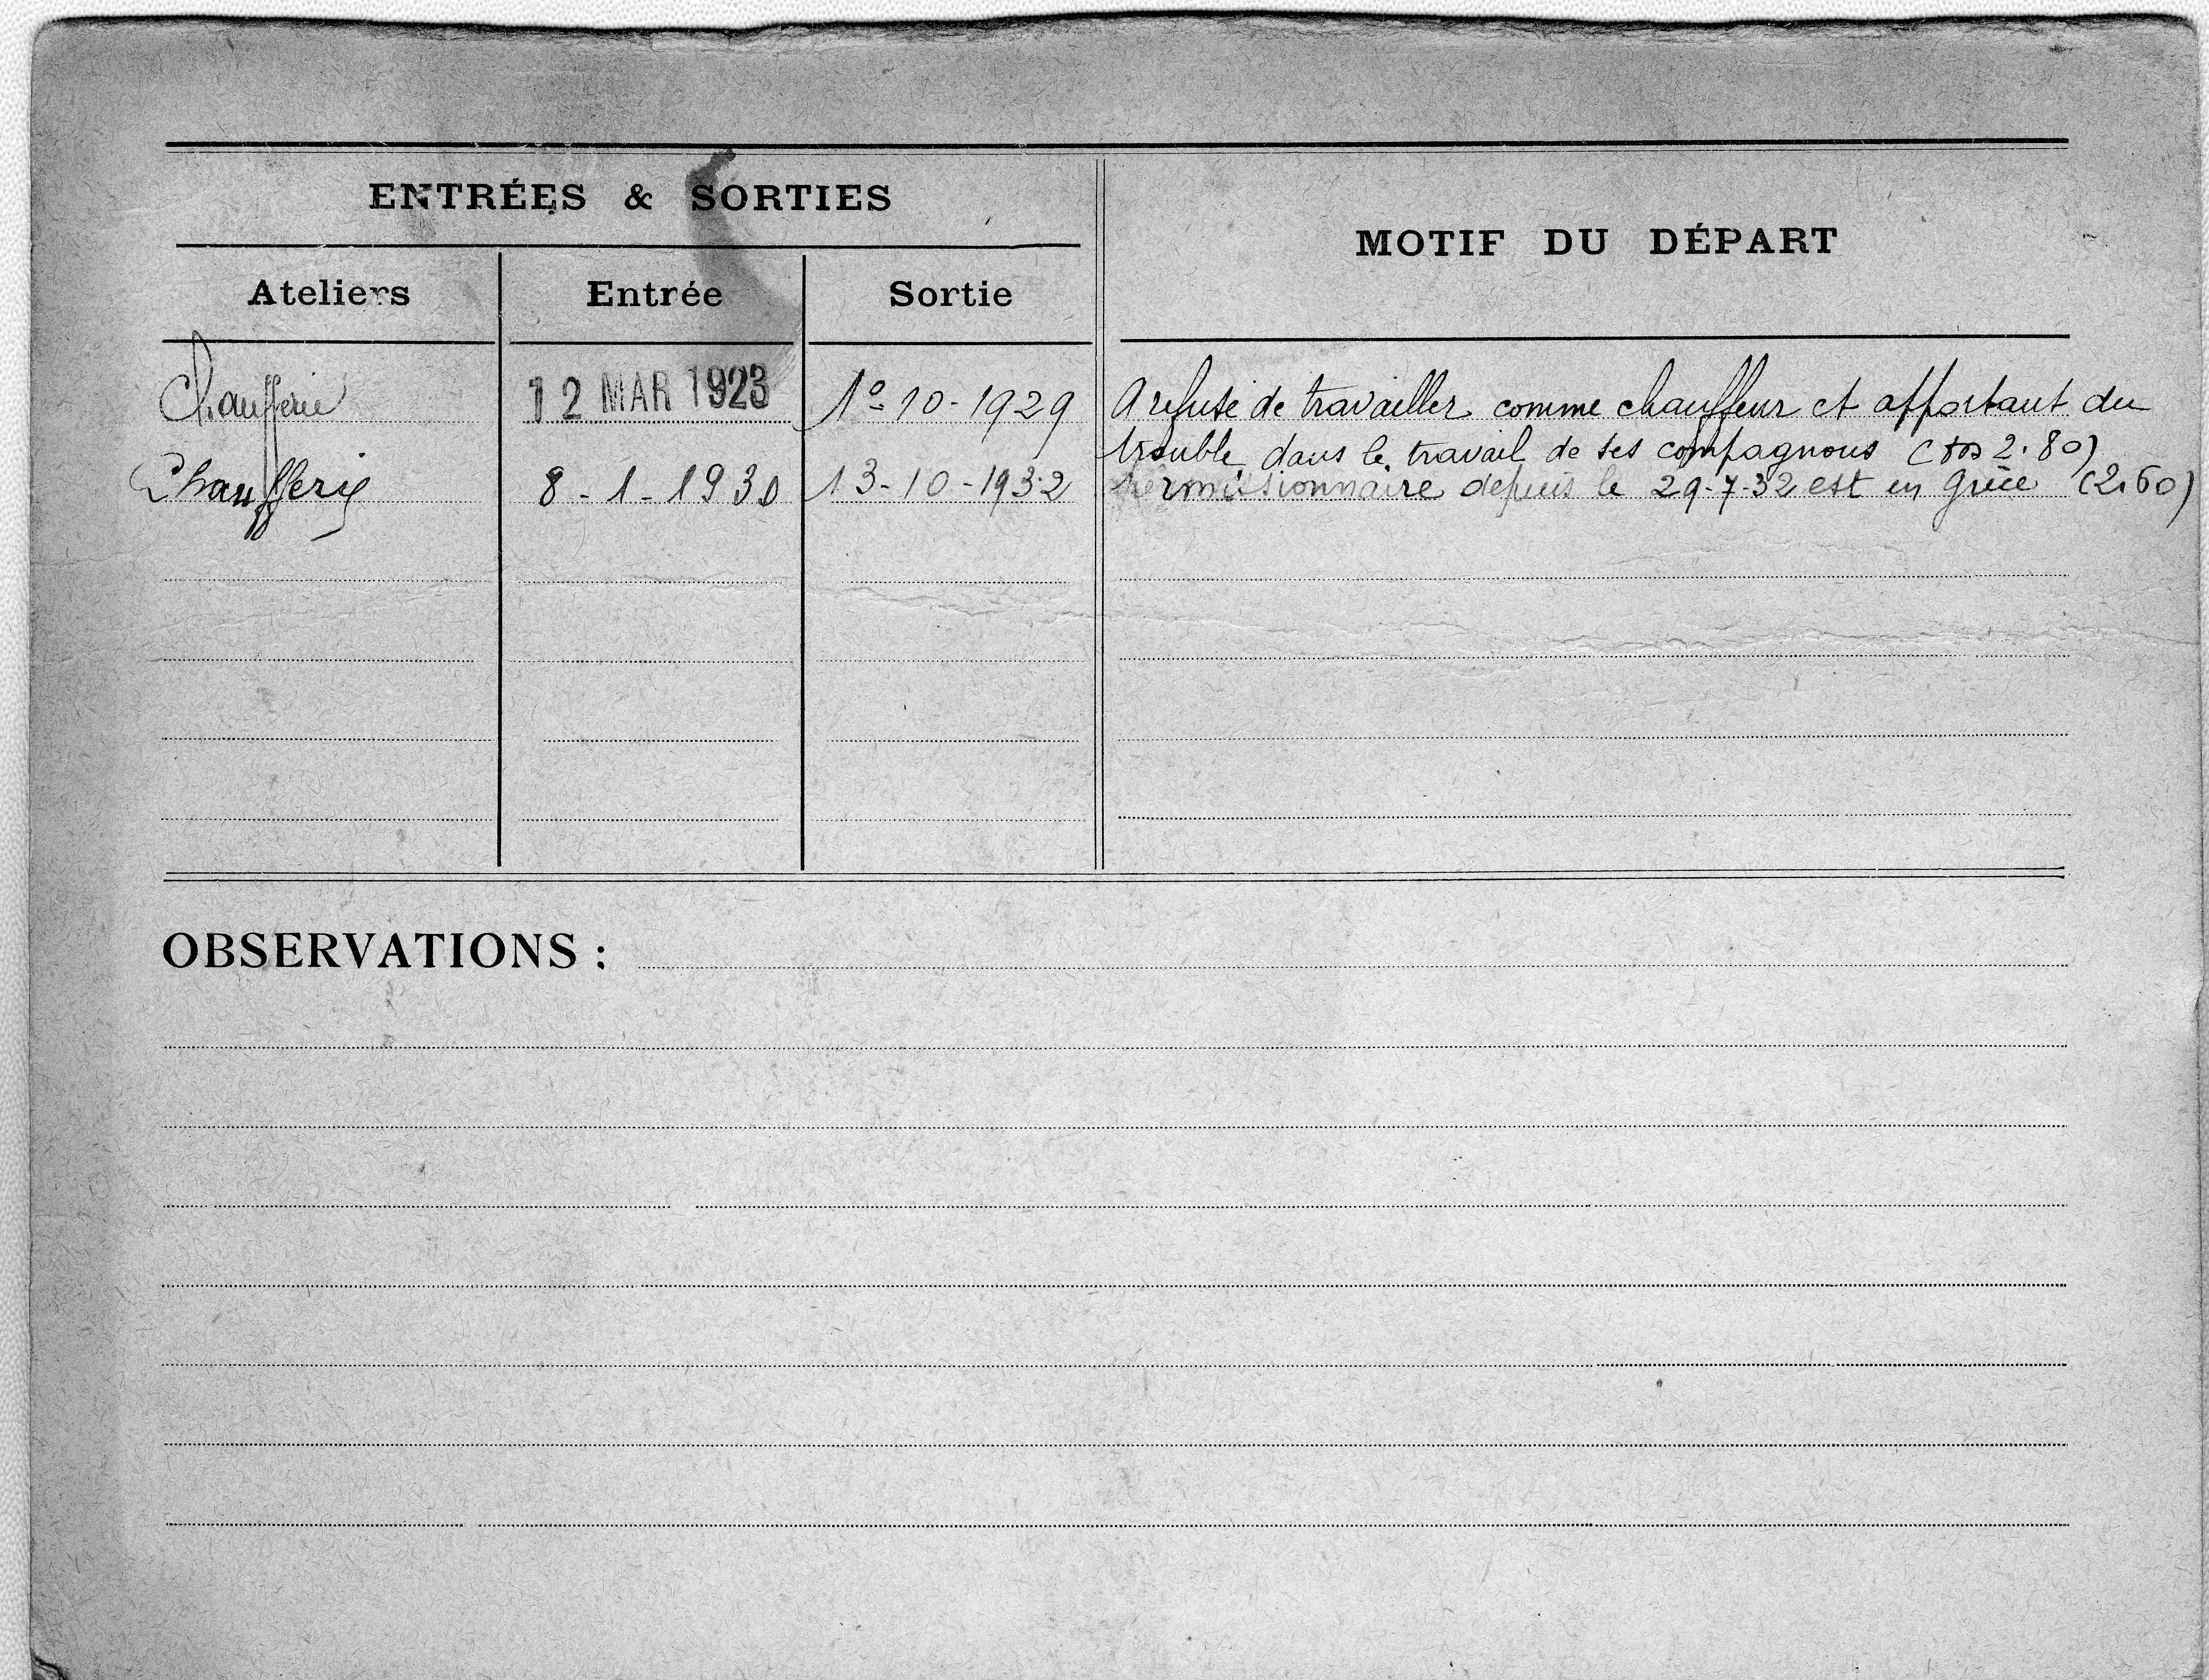 ENTRÉES & SORTIES
MOTIF DU DÉPART
Ateliers Entrée Sortie
Chaufferie 12 MAR 1923 1º-10-1929 A refusé de travailler comme chauffeur et apportant du
trouble dans le travail de ses compagnons ( 2.80)
Chaufferie 8-1-1930 13-10-1932 Permissionnaire depuis le 29-7-32 est en Grèce (2.60)
OBSERVATIONS :